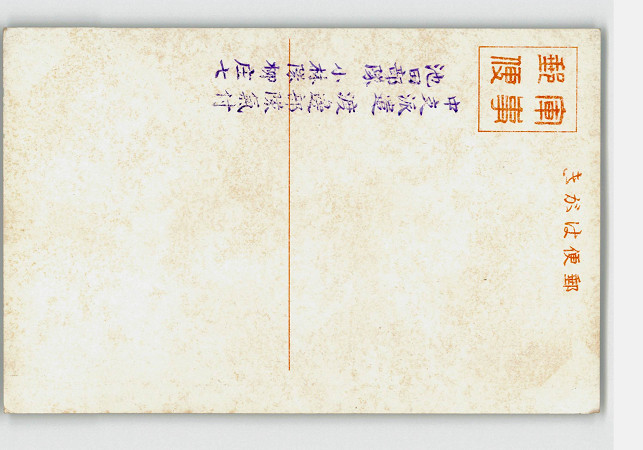 郵便はがき
軍事
郵便
中支派遣 渡邊部隊氣付
池田部隊 小林隊 柳庄七